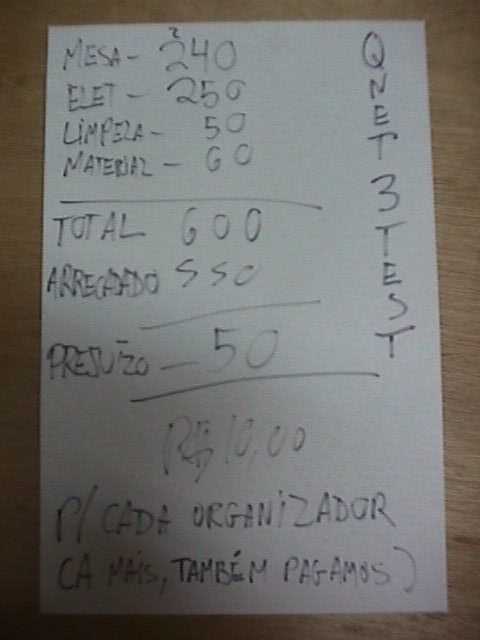 MESA - 240
ELET - 250
LIMPEZA - 50
MATERIAL - 60
TOTAL 600
ARRECADADO 550
PREJUÍZO - 50
R$ 10,00
P/ CADA ORGANIZADOR
(A MAIS, TAMBÉM PAGAMOS)
QNET 3 TEST